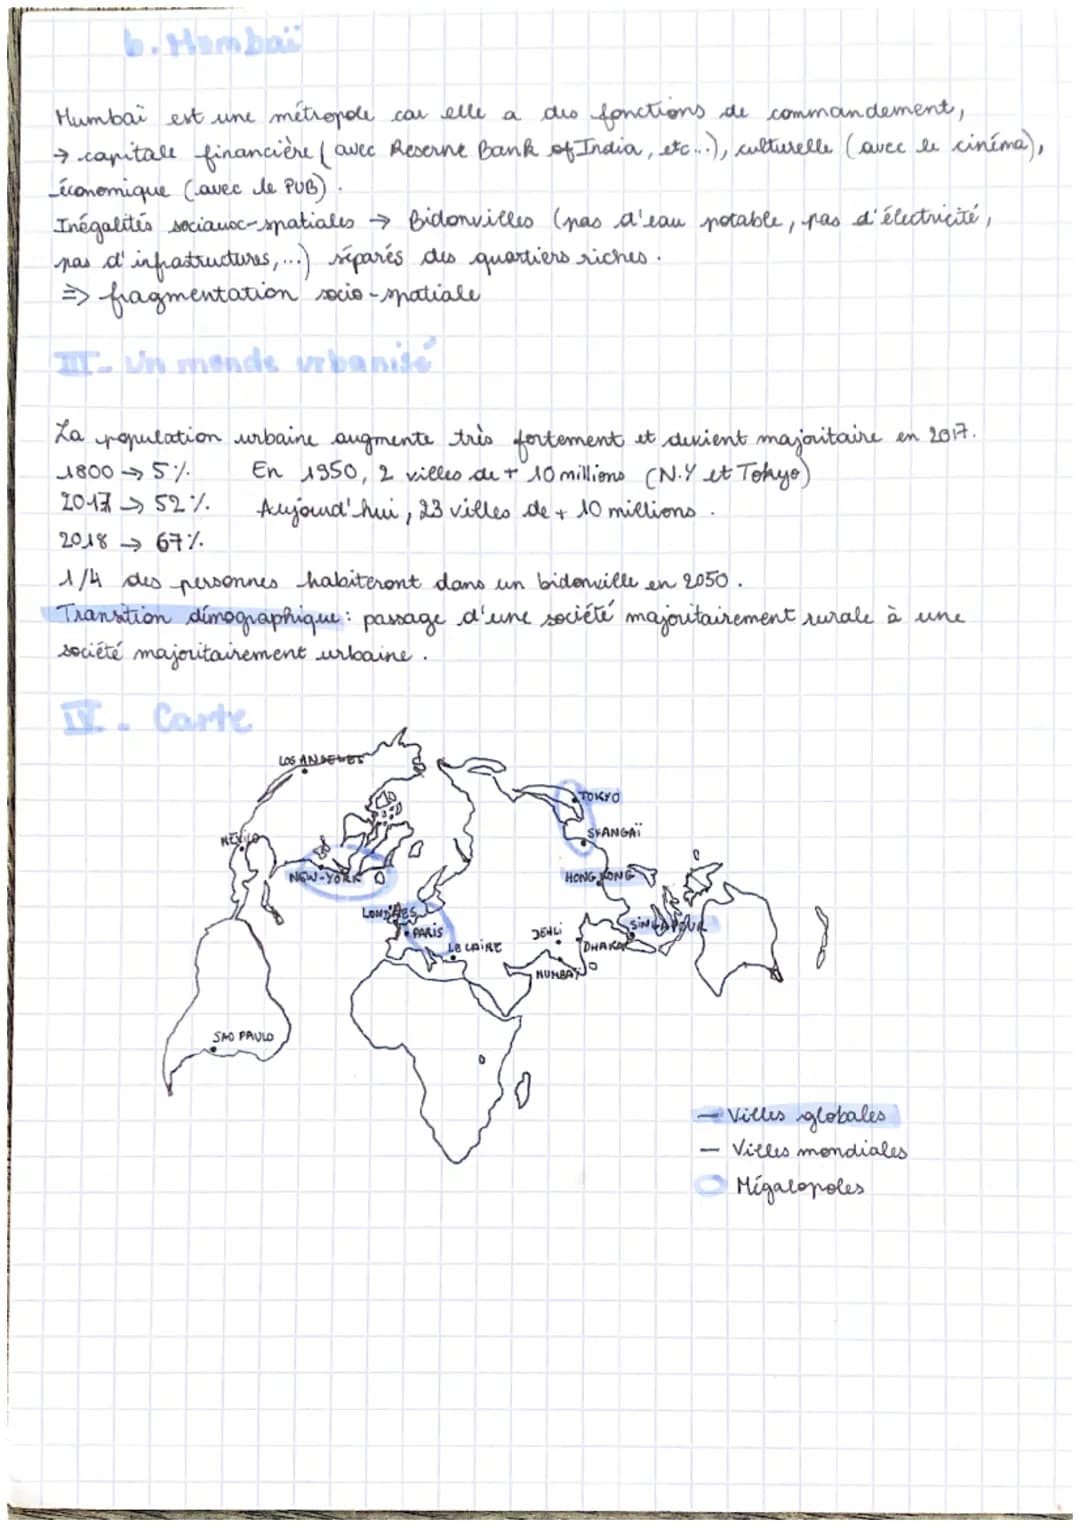 b. Mumbaï
Mumbaï est une métropole car elle a des fonctions de commandement,
→ capitale financière (avec Reserve Bank of India, etc...), culturelle (avec le cinéma),
économique (avec le PUB).
Inégalités sociaux-spatiales → Bidonvilles (pas d'eau potable, pas d'électricité,
pas d'infrastructures,...) séparés des quartiers riches.
=> fragmentation socio-spatiale
III - Un monde urbanisé
La population urbaine augmente très fortement et devient majoritaire en 2017.
1800 → 5%. En 1950, 2 villes de + 10 millions (N.Y et Tokyo)
2017 → 52%. Aujourd'hui, 23 villes de + 10 millions.
2018 → 67%.
1/4 des personnes habiteront dans un bidonville en 2050.
Transition démographique : passage d'une société majoritairement rurale à une
société majoritairement urbaine.
IV - Carte
LOS ANGELES
TOKYO
MEXICO
SHANGAÏ
NEW-YORK
HONG KONG
LONDRES
PARIS
SINGAPOUR
DEHLI
LE CAIRE
DHAKA
MUMBAÏ
SAO PAULO
— Villes globales
— Villes mondiales
O Mégalopoles